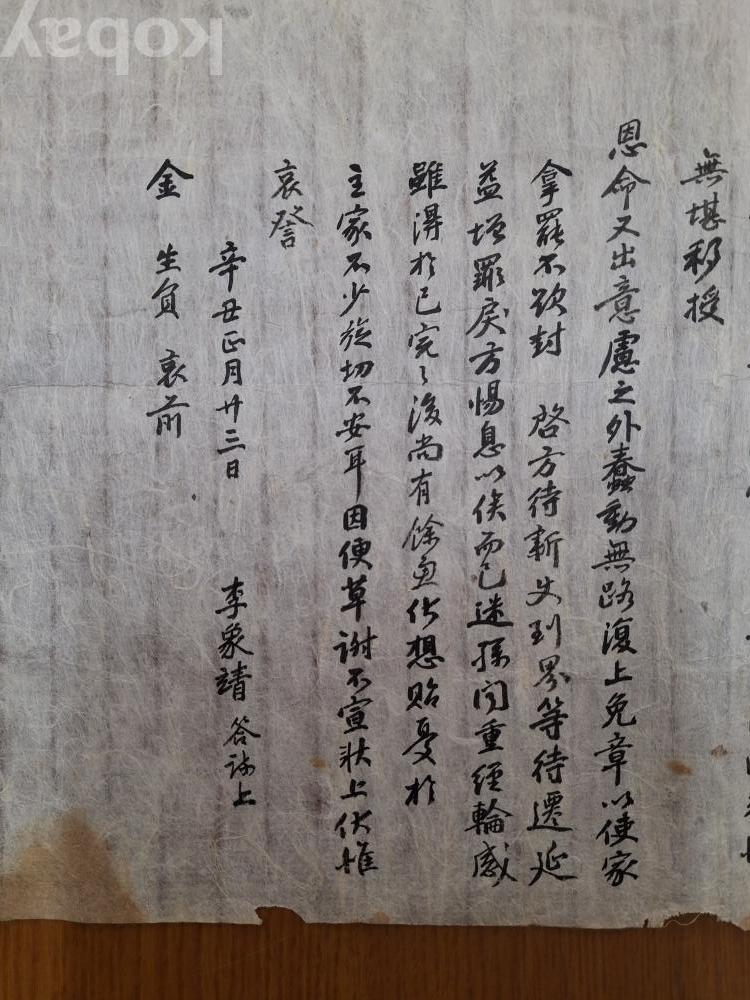 無堪移授
恩命又出意慮之外蠢動無路復上免章以使家
拿罷不欲封 啓方待新史到界等待遷延
益增罪戾方惕息以俟而已迷孫間重經輪感
雖得於已完〻後尚有餘憂伏想貽憂於
主家不少旋切不安耳因便草謝不宣狀上伏惟
哀詧
辛丑正月廿三日 李象靖 答疏上
金 生員 哀前
kobay